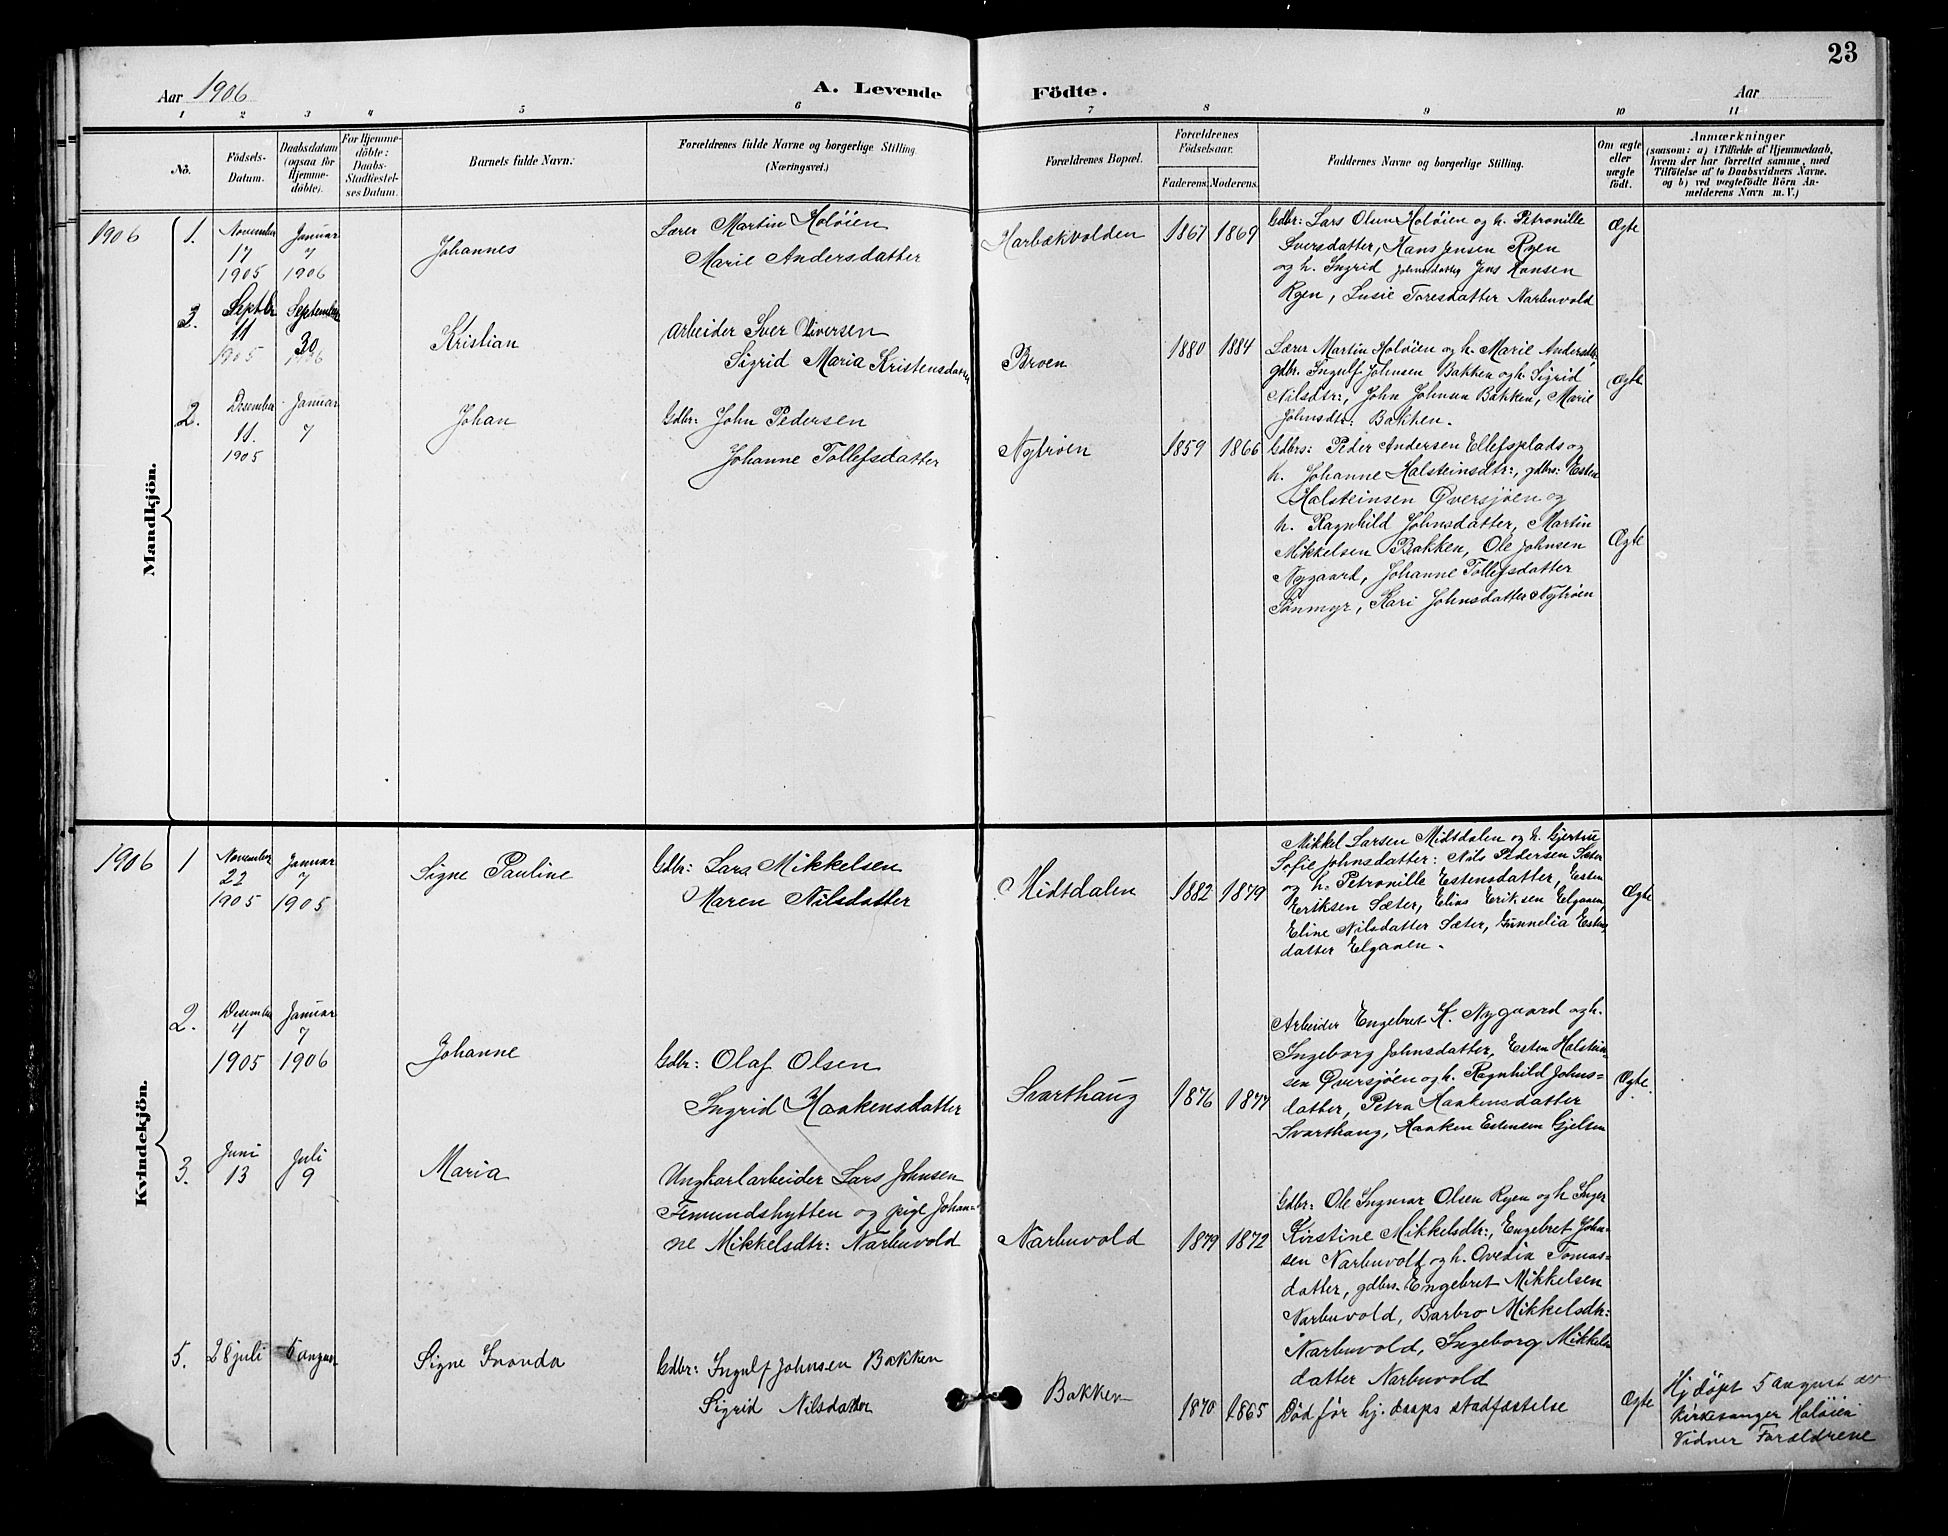 23
Aar 1906 A. Levende Födte. Aar
1 2 3 4 5 6 7 8 9 10 11
No. Födsels-Datum. Daabsdatum (ogsaa for Hjemme-döbte). For Hjemme-döbte: Daabs-Stadfæstelses Datum. Barnets fulde Navn. Forældrenes fulde Navne og borgerlige Stilling. (Næringsvei.) Forældrenes Bopæl. Forældrenes Födselsaar. Faderens. Moderens. Faddernes Navne og borgerlige Stilling. Om ægte eller uægte födt. Anmærkninger (saasom: a) i Tilfælde af Hjemmedaab, hvem der har forrettet samme, med Tilföielse af to Daabsvidners Navne. og b) ved uægtefödte Börn Anmelderens Navn m. V.)
Mandkjön.
1906 1. November 17 1905 Januar 7 1906 Johannes
Lærer Martin Holøien
Marie Andersdatter
Harbækvolden 1867 1869
Gdbr: Lars Olsen Holøien og h. Petronille
Sversdatter, Hans Jensen Ryen
og h. Ingrid Johnsdatter Jens Hansen
Ryen, Lusie Toresdatter Narbuvold
Ægte
3. Septbr 11 1905 September 30 1906 Kristian
Arbeider Sver Oliversen
Sigrid Maria Kristensdatter
Broen 1880 1884
Lærer Martin Holøien og h. Marie Andersdtr,
gdbr. Ingulf Johnsen Bakken og h. Sigrid
Nilsdtr:, John Johnsen Bakken, Marie
Johnsdtr: Bakken.
Ægte
2. Desember 11. 1905 Januar 7 Johan
Gdbr: John Pedersen
Johanne Tollefsdatter
Nytrøen 1859 1866
Gdbrs: Peder Andersen Ellefsplads og
h. Johanne Halsteinsdtr:, gdbrs: Esten
Halsteinsen Øversjøen og
h. Ragnhild Johnsdatter, Martin
Mikkelsen Bakken, Ole Johnsen
Nygaard, Johanne Tollefsdatter
Tønmyr, Kari Johnsdatter Nytrøen
Ægte
Kvindekjön.
1906 1 November 22 1905 Januar 7 1905 Signe Pauline
Gdbr: Lars Mikkelsen
Maren Nilsdatter
Midtdalen 1882 1879
Mikkel Larsen Midtdalen og h. Gjertrue
Sofie Johnsdatter: Nils Pedersen Sæter
og h. Petronille Estensdatter, Esten
Eriksen Sæter, Elias Eriksen Elgaaen,
Eline Nilsdatter Sæter, Gunnelia Estens
datter Elgaaen.
Ægte
2. Desember 4 1905 Januar 7 1906 Johanne
Gdbr: Olaf Olsen
Ingrid Haakensdatter
Svarthaug 1876 1877
Arbeider Engebret K. Nygaard og h.
Ingeborg Johnsdatter, Esten Halstein-
sen Øversjøen og h. Ragnhild Johns-
datter, Petra Haakensdatter
Svarthaug, Haaken Estensen Gjelten
Ægte.
3. Juni 13 Juli 9 Maria
Ungkarlarbeider Lars Johnsen
Femundshytten og pige Johan-
ne Mikkelsdtr: Narbuvold
Narbuvold 1879 1872
Gdbr: Ole Ingmar Olsen Ryen og h Inger
Kirstine Mikkelsdtr:, Engebret John-
sen Narbuvold og h. Ovedia Tomas-
datter, gdbrs. Engebret Mikkelsen
Narbuvold, Barbro Mikkelsdtr:
Narbuvold, Ingeborg Mikkels
datter Narbuvold
5. 28 juli 5 august Signe Svanda
Gdbr: Ingulf Johnsen Bakken
Sigrid Nilsdatter
Bakken 1870 1865
Død før hj. daaps stadfæstelse
Ægte
Hj. døpt 5 august av
kirkesanger Holøien
Vidner Forældrene